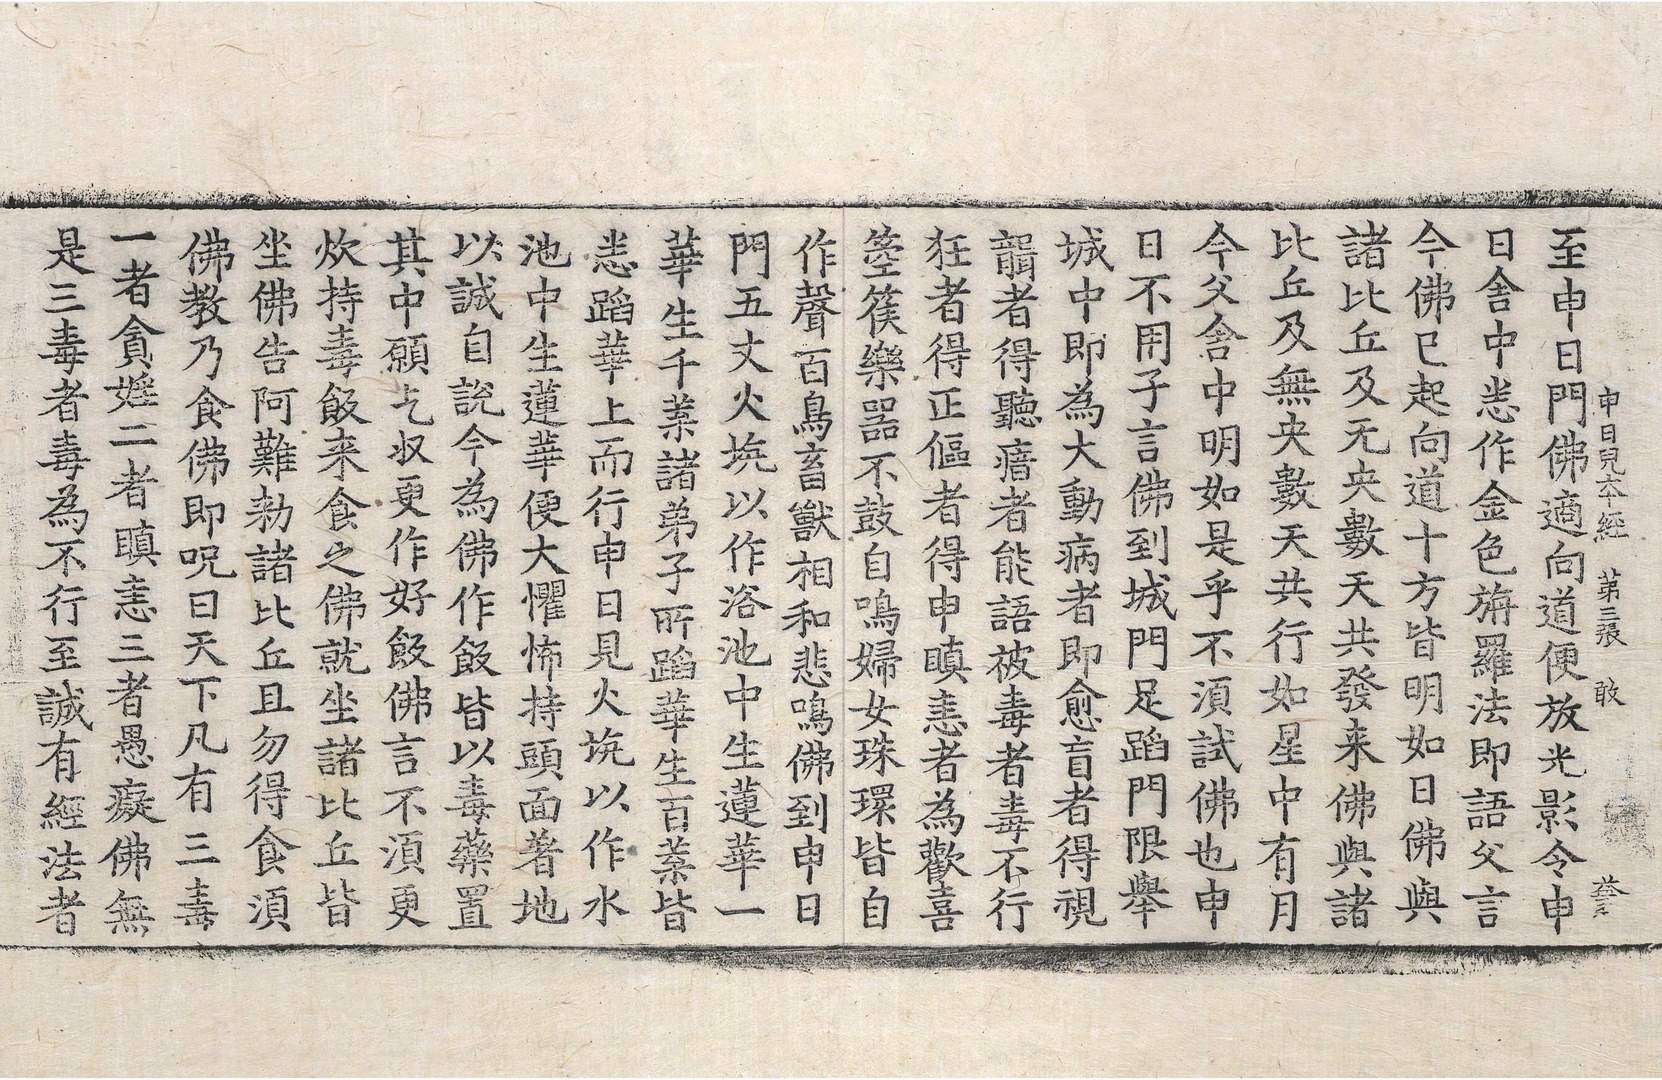 申日兒本經 第三張 敢
至申日門佛適向道便放光影令申
日舎中悉作金色旃羅法即語父言
今佛已起向道十方皆明如日佛與
諸比丘及无央數天共發来佛與諸
比丘及無央數天共行如星中有月
今父舎中明如是乎不湏試佛也申
日不用子言佛到城門足蹈門限舉
城中即為大動病者即愈盲者得視
聾者得聽瘖者能語被毒者毒不行
狂者得正傴者得申瞋恚者為歡喜
箜篌樂噐不鼓自鳴婦女珠環皆自
作聲百鳥畜獸相和悲鳴佛到申日
門五丈火坑以作浴池中生蓮華一
華生千葉諸弟子所蹈華生百葉皆
悉蹈華上而行申日見火坑以作水
池中生蓮華便大懼怖持頭面著地
以誠自說今為佛作飯皆以毒藥置
其中願乞収更作好飯佛言不湏更
炊持毒飯来食之佛就坐諸比丘皆
坐佛告阿難勑諸比丘且勿得食湏
佛教乃食佛即呪曰天下凡有三毒
一者貪婬二者瞋恚三者愚癡佛無
是三毒者毒為不行至誠有經法者